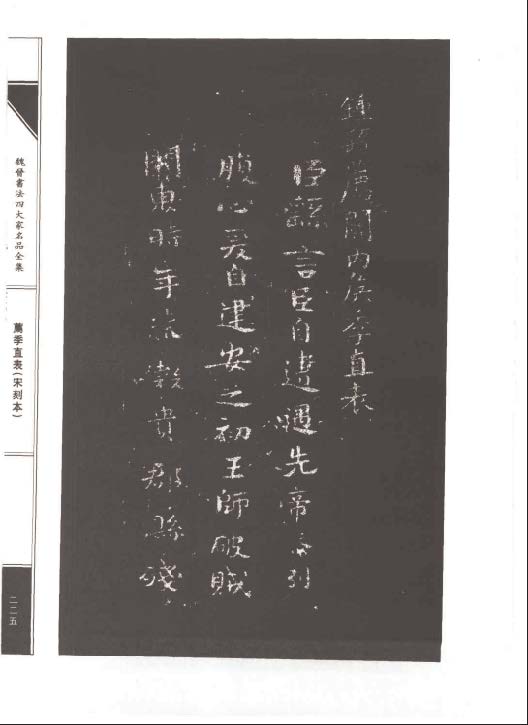 鍾繇薦關内侯季直表
臣繇言臣自遭遇先帝忝列
腹心爰自建安之初王師破賊
關東時年荒穀貴郡縣殘
魏晉書法四大家名品全集
薦季直表(宋刻本)
二二五